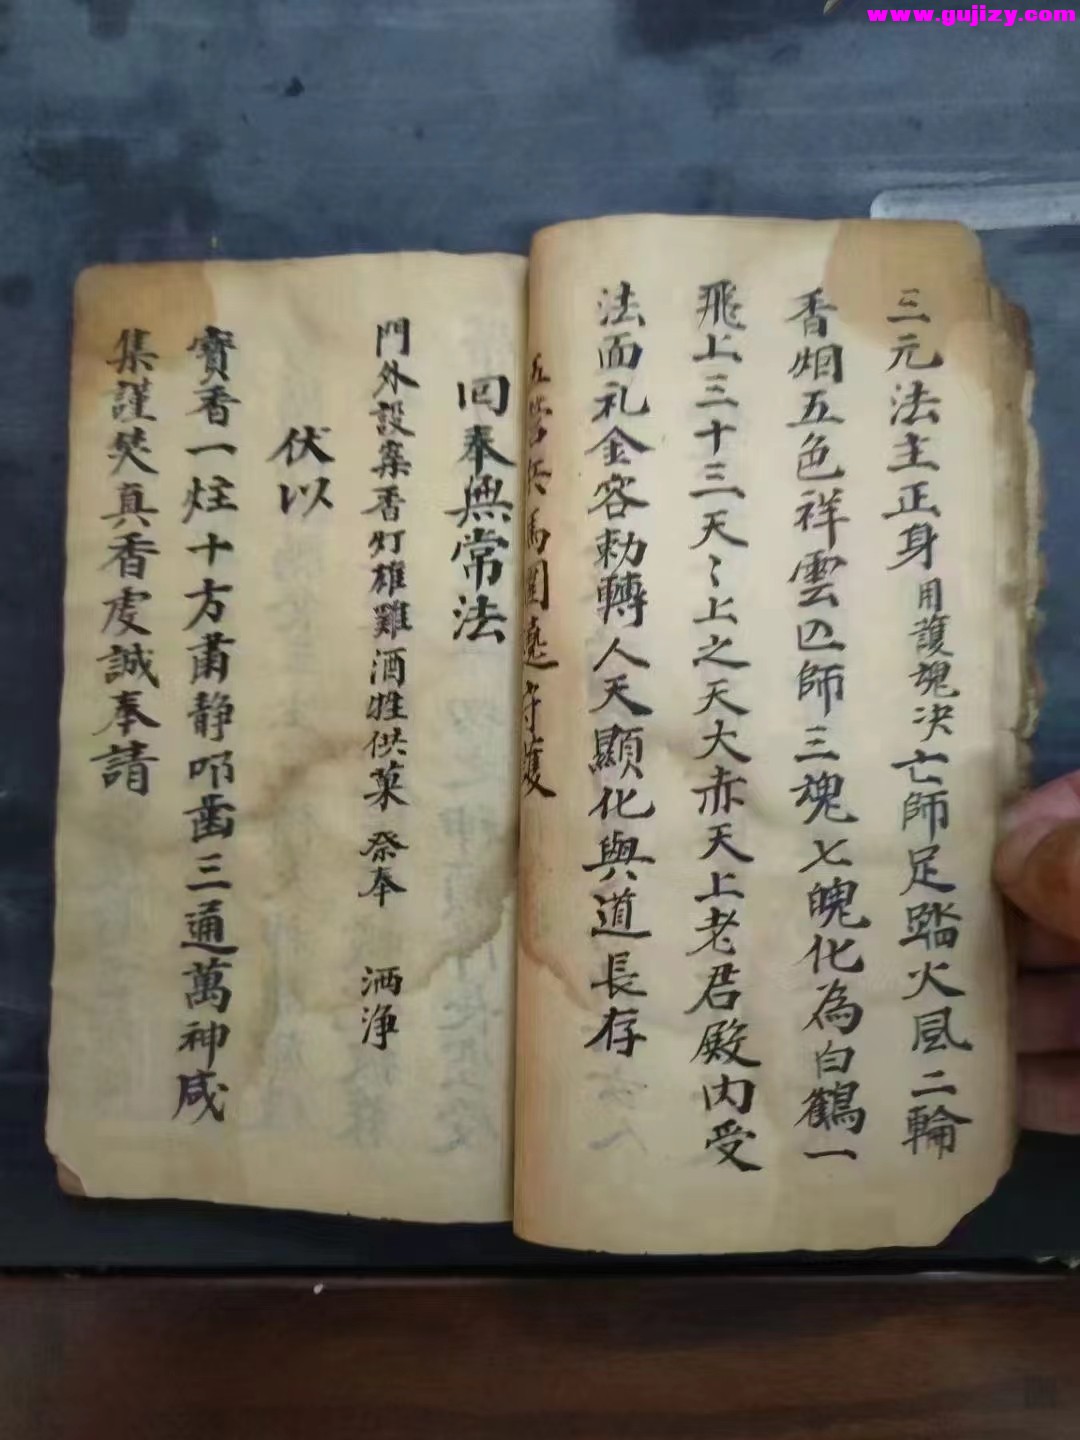 www.gujizy.com
三元法主正身用護魂决亡師足踏火風二輪
香烟五色祥雲亡師三魂七魄化為白鶴一
飛上三十三天〻上之天大赤天上老君殿内受
法面礼金容勅轉人天顯化與道長存
五營兵馬圍遶守護
回奉無常法
門外設案香灯雄雞酒牲供菓祭奉 洒浄
伏以
寳香一炷十方肅静叩齒三通萬神咸
集謹焚真香虔誠奉請